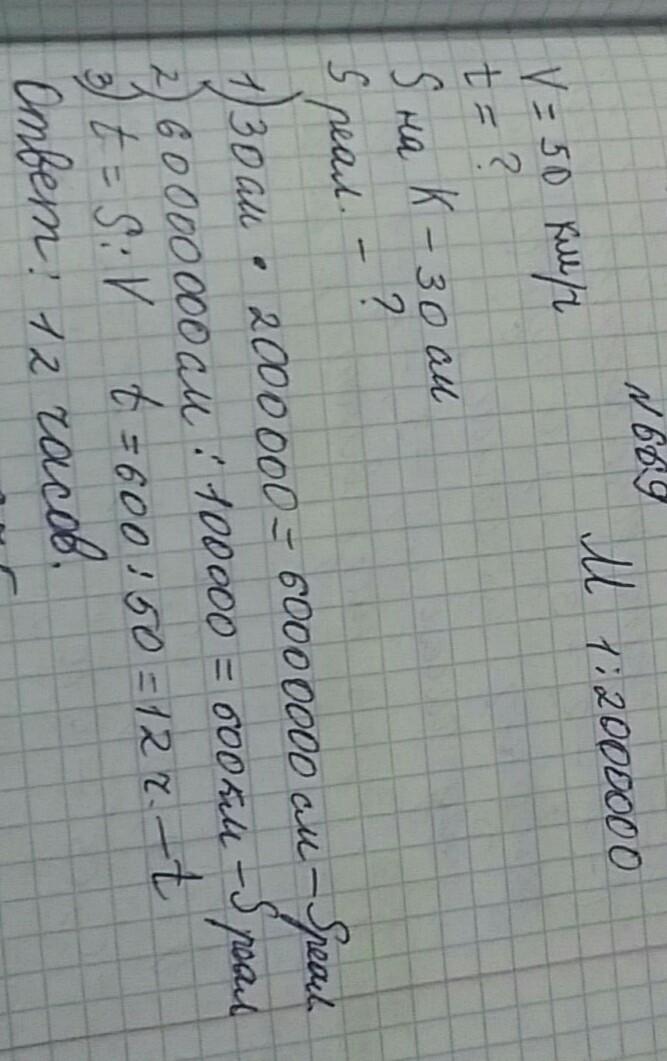 N669
М 1:2000000
V = 50 км/ч
t = ?
S на К - 30 см
S реал. - ?
1) 30 см • 2000000 = 60000000 см - S реал
2) 60000000 см : 100000 = 600 км - S реал
3) t = S : V t = 600 : 50 = 12 ч. - t
Ответ: 12 часов.